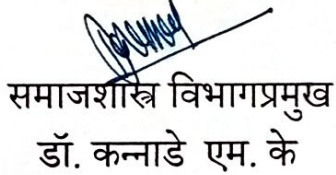 समाजशास्त्र विभागप्रमुख
डॉ. कन्नाडे एम. के